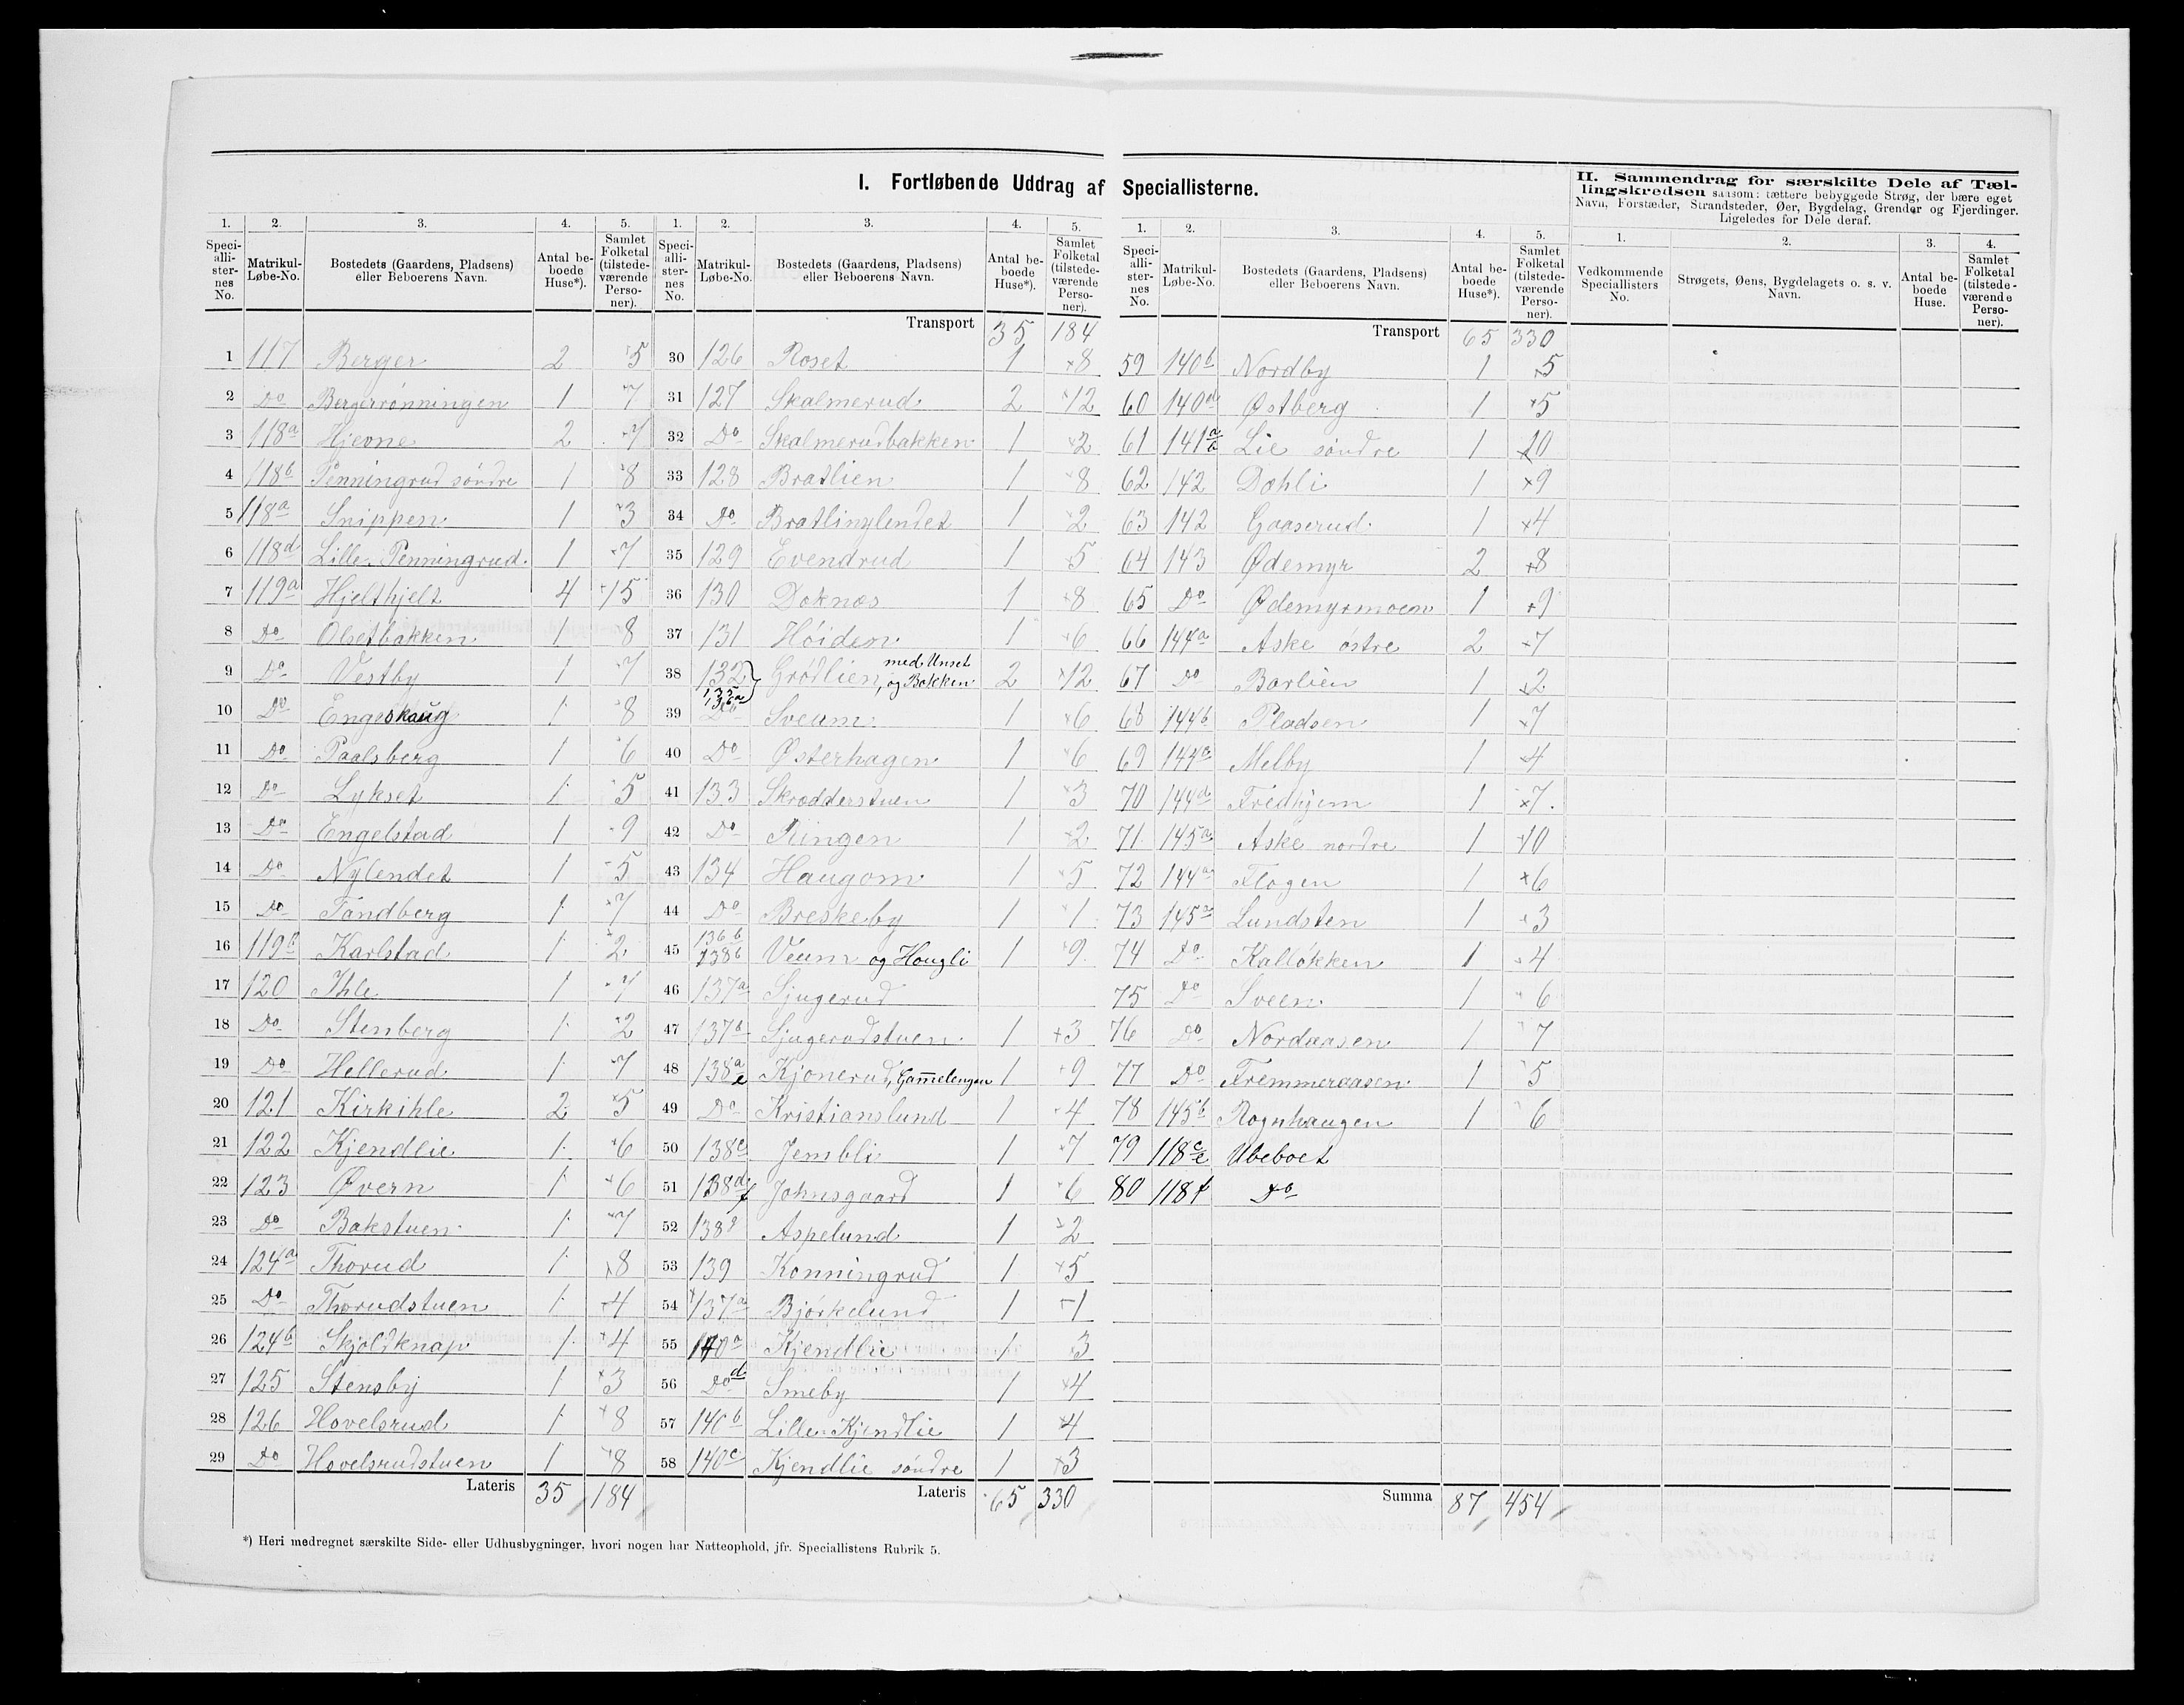 I. Fortløbende Uddrag af Speciallisterne.
II. Sammendrag for særskilte Dele af Tæl-
lingskredsen saasom: tættere bebyggede Strøg, der bære eget
Navn, Forstæder, Strandsteder, Øer, Bygdelag, Grender og Fjerdinger.
Ligeledes for Dele deraf.
1. 2. 3. 4. 5.
Speci-alli-ster-nes No. Matrikul-Løbe-No. Bostedets (Gaardens, Pladsens) eller Beboerens Navn. Antal be-boede Huse*). Samlet Folketal (tilstede-værende Perso-ner).
1 117 Berger 2 5
2 Do Bergerrønningen 1 7
3 118a Hjevne 2 7
4 118b Penningrud søndre 1 8
5 118a Snippen 1 3
6 118d Lille Penningrud 1 7
7 119a Hjelthjelt 4 15
8 Do Olsetbakken 1 8
9 Do Vestby 1 7
10 Do Engeskaug 1 8
11 Do Paalsberg 1 6
12 Do Lykset 1 5
13 Do Engelstad 1 9
14 Do Nylendet 1 5
15 Do Tandberg 1 7
16 119b Karlstad 1 2
17 120 Ihle 1 7
18 Do Stenberg 1 2
19 Do Hellerud 1 7
20 121 Kirkihle 2 5
21 122 Kjendlie 1 6
22 123 Øvern 1 6
23 Do Bakstuen 1 7
24 124a Thorud 1 8
25 Do Thorudstuen 1 4
26 124b Skjoldknap 1 4
27 125 Stensby 1 3
28 126 Hovelsrud 1 8
29 Do Hovelsrudstuen 1 8
Lateris 35 184
1. 2. 3. 4. 5.
Speci-alli-ster-nes No. Matrikul-Løbe-No. Bostedets (Gaardens, Pladsens) eller Beboerens Navn. Antal be-boede Huse*). Samlet Folketal (tilstede-værende Perso-ner).
Transport 35 184
30 126 Roset 1 8
31 127 Skalmerud 2 12
32 Do Skalmerudbakken 1 2
33 128 Bratlien 1 8
34 Do Bratlinylendet 1 2
35 129 Evendrud 1 5
36 130 Doknes 1 8
37 131 Høiden 1 6
38 132 135 136a Grødlien, med Unset og Bakken 2 12
39 Do Sveum 1 6
40 Do Østerhagen 1 6
41 133 Skrødderstuen 1 3
42 Do Ringen 1 2
43 134 Haugom 1 5
44 Do Breskeby 1 1
45 136b 138b Veum og Hougli 1 9
46 137a Sjugerud
47 137b Sjugerudstuen 1 3
48 138a e Kjonerud, Gamelengen 1 9
49 Do Kristianslund 1 4
50 138c Jembli 1 7
51 138d f Johnsgaard 1 6
52 138g Aspelund 1 2
53 139 Konningrud 1 5
54 137a Bjørkelund 1 1
55 140a Kjendlie 1 3
56 Do d Smeby 1 4
57 140b Lille Kjendlie 1 4
58 140c Kjendlie søndre 1 3
Lateris 65 330
1. 2. 3. 4. 5.
Speci-alli-ster-nes No. Matrikul-Løbe-No. Bostedets (Gaardens, Pladsens) eller Beboerens Navn. Antal be-boede Huse*). Samlet Folketal (tilstede-værende Perso-ner).
Transport 65 330
59 140b Nordby 1 5
60 140d Østberg 1 5
61 141a b Lie søndre 1 10
62 142 Dohli 1 9
63 142 Gaaserud 1 4
64 143 Ødemyr 2 8
65 Do Ødemyrmoen 1 9
66 144a Aske østre 2 7
67 Do Barlien 1 2
68 144b Pladsen 1 7
69 144c Melby 1 4
70 144d Fredhjem 1 7
71 145a Aske nordre 1 10
72 144a Flagen 1 6
73 145a Lundsten 1 3
74 Do Kalløkken 1 4
75 Do Sveen 1 6
76 Do Nordaasen 1 7
77 Do Fremmeraasen 1 5
78 145b Rognhaugen 1 6
79 118c e Ubeboet
80 118f Do
Summa 87 454
1. 2. 3. 4.
Vedkommende Speciallisters No. Strøgets, Øens, Bygdelagets o. s. v. Navn. Antal be-boede Huse. Samlet Folketal (tilstede-værende Perso-ner).
*) Heri medregnet særskilte Side- eller Udhusbygninger, hvori nogen har Natteophold, jfr. Speciallistens Rubrik 5.